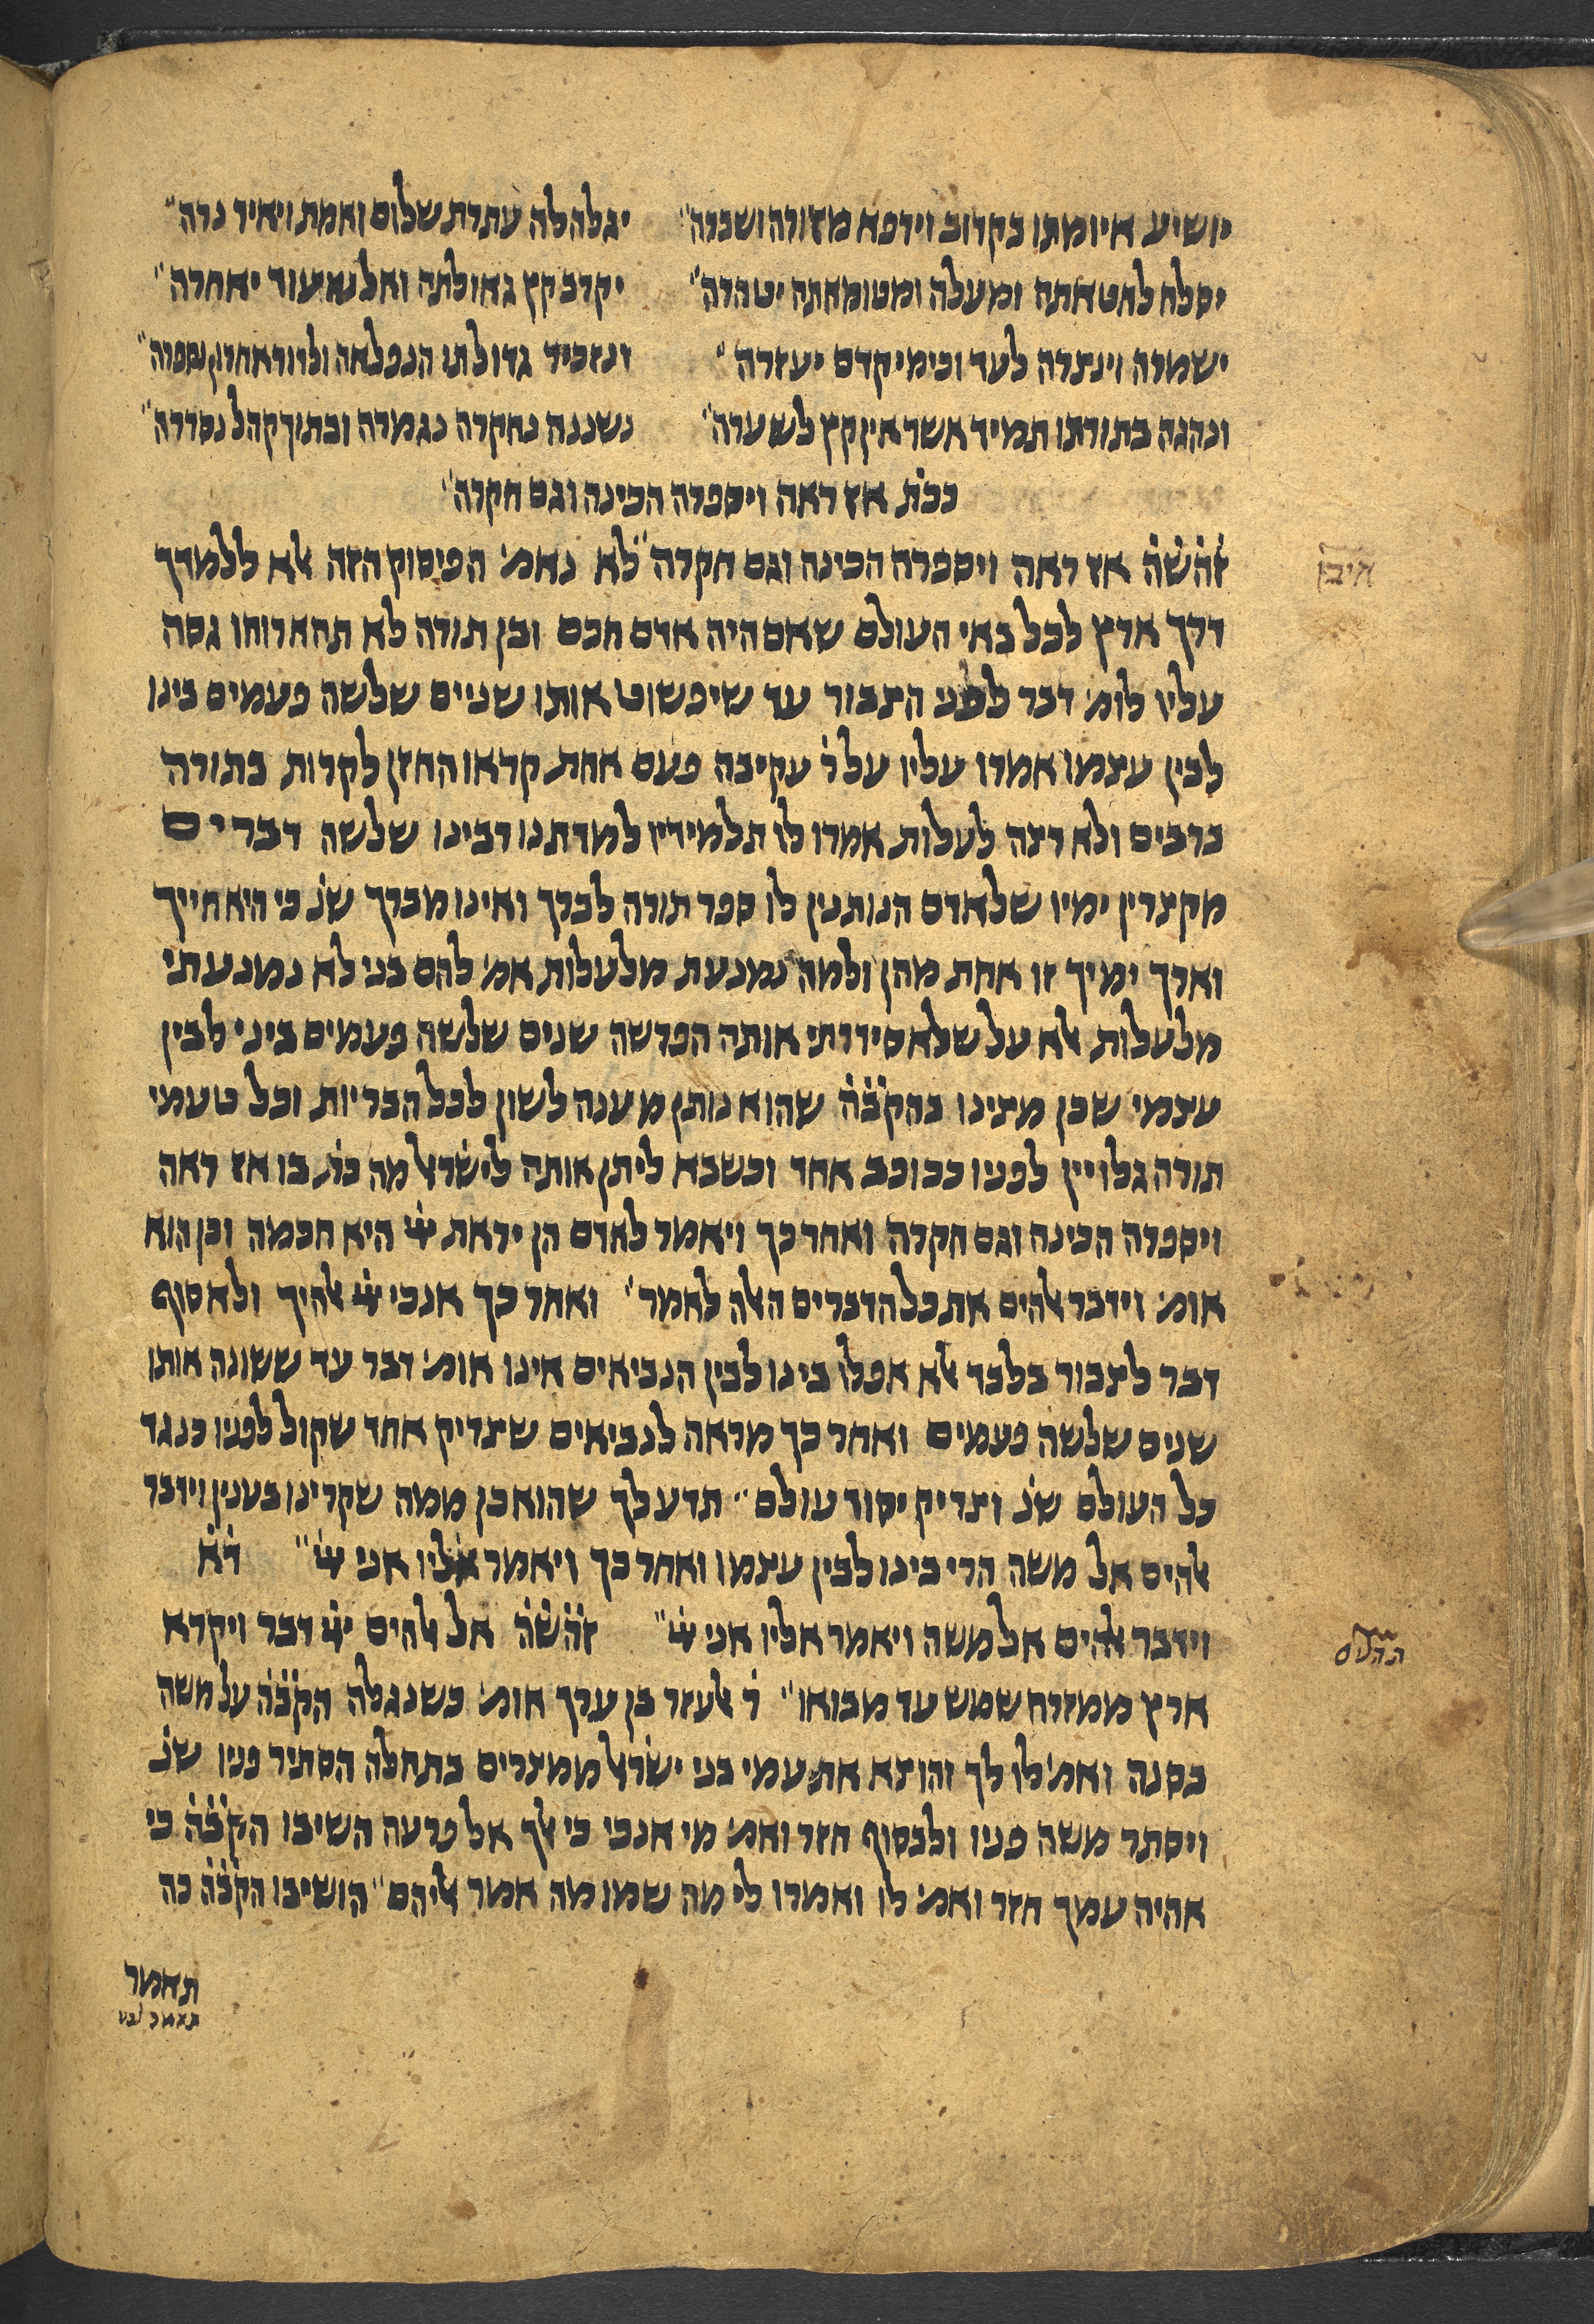 יושיע איומתו בקרוב וירפא מזורה ושברה" יגלה לה עתרת שלום ואמת ויאיר נרה"
יסלח לחטאתה ומעלה ומטומאתה יטהרה" יקרב קץ גאולתה ואל נא עוד יאחרה"
ישמרה וינצרה לעד וכימי קדם יעזרה" ונזכיר גדולתו הנפלאה ולדור אחרון נספרה"
ונהגה בתורתו תמיד אשר אין קץ לשערה" נשננה נחקרה נגמרה ובתוך קהל נסדרה"
ככת̇ אז ראה ויספרה הכינה וגם חקרה"
זה̇ש̇ה̇ אז ראה ויספרה הכינה וגם חקרה" לא נאמ' הפיסוק הזה אלא ללמדך
דרך ארץ לכל באי העולם שאם היה אדם חכם ובן תורה לא תהא רוחו גסה
עליו לומ' דבר לפני הצבור עד שיפשוט אותו שניים שלשה פעמים בינו
לבין עצמו אמרו עליו על ר̇ עקיבה פעם אחת קראו החזן לקרות בתורה
ברבים ולא רצה לעלות אמרו לו תלמידיו למדתנו רבינו שלשה דברים
מקצרין ימיו שלאדם הנותנין לו ספר תורה לברך ואינו מברך שנ̇ כי היא חייך
וארך ימיך זו אחת מהן ולמה נמנעת מלעלות אמ' להם בני לא נמנעתי
מלעלות אלא על שלא סידרתי אותה הפרשה שנים שלשה פעמים ביני לבין
עצמי שכן מצינו בהק̇ב̇ה̇ שהוא נותן מענה לשון לכל הבריות וכל טעמי
תורה גלויין לפניו ככוכב אחד וכשבא ליתן אותה לישראל מה כת̇ בו אז ראה
ויספרה הכינה וגם חקרה ואחר כך ויאמר לאדם הן יראת יי̇ היא חכמה וכן הוא
אומ' וידבר אלהים את כל הדברים האלה לאמר" ואחר כך אנכי יי̇ אלהיך ולא סוף
דבר לצבור בלבד אלא אפלו בינו לבין הנביאים אינו אומ' דבר עד ששונה אותו
שנים שלשה פעמים ואחר כך מראה לנביאים שצדיק אחד שקול לפניו כנגד
כל העולם שנ̇ וצדיק יסוד עולם" תדע לך שהוא כן ממה שקרינו בענין וידבר
אלהים אל משה הרי בינו לבין עצמו ואחר כך ויאמר אליו אני יי̇" ד̇א̇
וידבר אלהים אל משה ויאמר אליו אני יי̇" זה̇ש̇ה̇ אל אלהים יי̇ דבר ויקרא
ארץ ממזרח שמש עד מבואו" ר̇ אלעזר בן ערך אומ' כשנגלה הק̇ב̇ה̇ על משה
בסנה ואמ' לו לך והוצא את עמי בני ישראל ממצרים בתחלה הסתיר פניו שנ̇
ויסתר משה פניו ולבסוף חזר ואמ' מי אנכי כי אלך אל פרעה השיבו הק̇ב̇ה̇ כי
אהיה עמך חזר ואמ' לו ואמרו לי מה שמו מה אמר אליהם" השיבו הק̇ב̇ה̇ כה
תאמר
איבן
תהלים